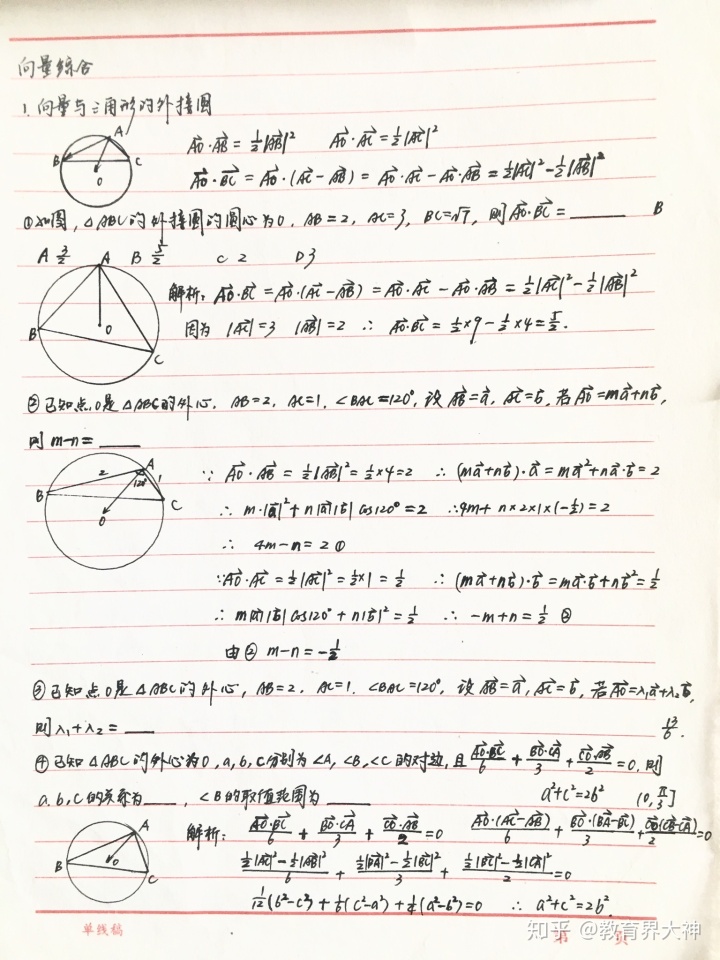 向量综合
1. 向量与三角形的外接圆
A B C O
AO⃗·AB⃗ = ½|AB⃗|² AO⃗·AC⃗ = ½|AC⃗|²
AO⃗·BC⃗ = AO⃗·(AC⃗ - AB⃗) = AO⃗·AC⃗ - AO⃗·AB⃗ = ½|AC⃗|² - ½|AB⃗|²
①如图, △ABC的外接圆的圆心为O, AB=2, AC=3, BC=√7, 则AO⃗·BC⃗ = ____ B
A 3/2 B 5/2 C 2 D 3
A B C O
解析: AO⃗·BC⃗ = AO⃗·(AC⃗ - AB⃗) = AO⃗·AC⃗ - AO⃗·AB⃗ = ½|AC⃗|² - ½|AB⃗|²
因为 |AC⃗|=3 |AB⃗|=2 ∴ AO⃗·BC⃗ = ½×9 - ½×4 = 5/2.
②已知点O是△ABC的外心, AB=2, AC=1, ∠BAC=120°, 设AB⃗=a⃗, AC⃗=b⃗, 若AO⃗=ma⃗+nb⃗,
则 m-n= ____
A B C O 2 1 120°
∵ AO⃗·AB⃗ = ½|AB⃗|² = ½×4=2 ∴ (ma⃗+nb⃗)·a⃗ = ma⃗²+na⃗·b⃗ = 2
∴ m·|a⃗|²+n|a⃗||b⃗|cos120° = 2 ∴4m+ n×2×1×(-½)=2
∴ 4m-n=2 ①
∵AO⃗·AC⃗ = ½|AC⃗|² = ½×1 = ½ ∴ (ma⃗+nb⃗)·b⃗ = ma⃗·b⃗+nb⃗² = ½
∴ m|a⃗||b⃗|cos120°+n|b⃗|² = ½ ∴ -m+n = ½ ②
由② m-n=-½
③已知点O是△ABC的外心, AB=2, AC=1, ∠BAC=120°, 设AB⃗=a⃗, AC⃗=b⃗, 若AO⃗=λ₁a⃗+λ₂b⃗,
则λ₁+λ₂= ____ 13/6.
④已知△ABC的外心为O, a, b, c分别为∠A, ∠B, ∠C的对边, 且 AO⃗·BC⃗/6 + BO⃗·CA⃗/3 + CO⃗·AB⃗/2 =0, 则
a, b, c的关系为____, ∠B的取值范围为____ a²+c²=2b² (0, π/3]
A B C O
解析: AO⃗·BC⃗/6 + BO⃗·CA⃗/3 + CO⃗·AB⃗/2 =0 AO⃗·(AC⃗-AB⃗)/6 + BO⃗·(BA⃗-BC⃗)/3 + CO⃗·(CB⃗-CA⃗)/2 =0
(½|AC⃗|²-½|AB⃗|²)/6 + (½|BA⃗|²-½|BC⃗|²)/3 + (½|BC⃗|²-½|CA⃗|²)/2 =0
1/12(b²-c²)+1/6(c²-a²)+1/4(a²-b²)=0 ∴ a²+c²=2b².
单线稿
第 页
知乎 @教育界大神